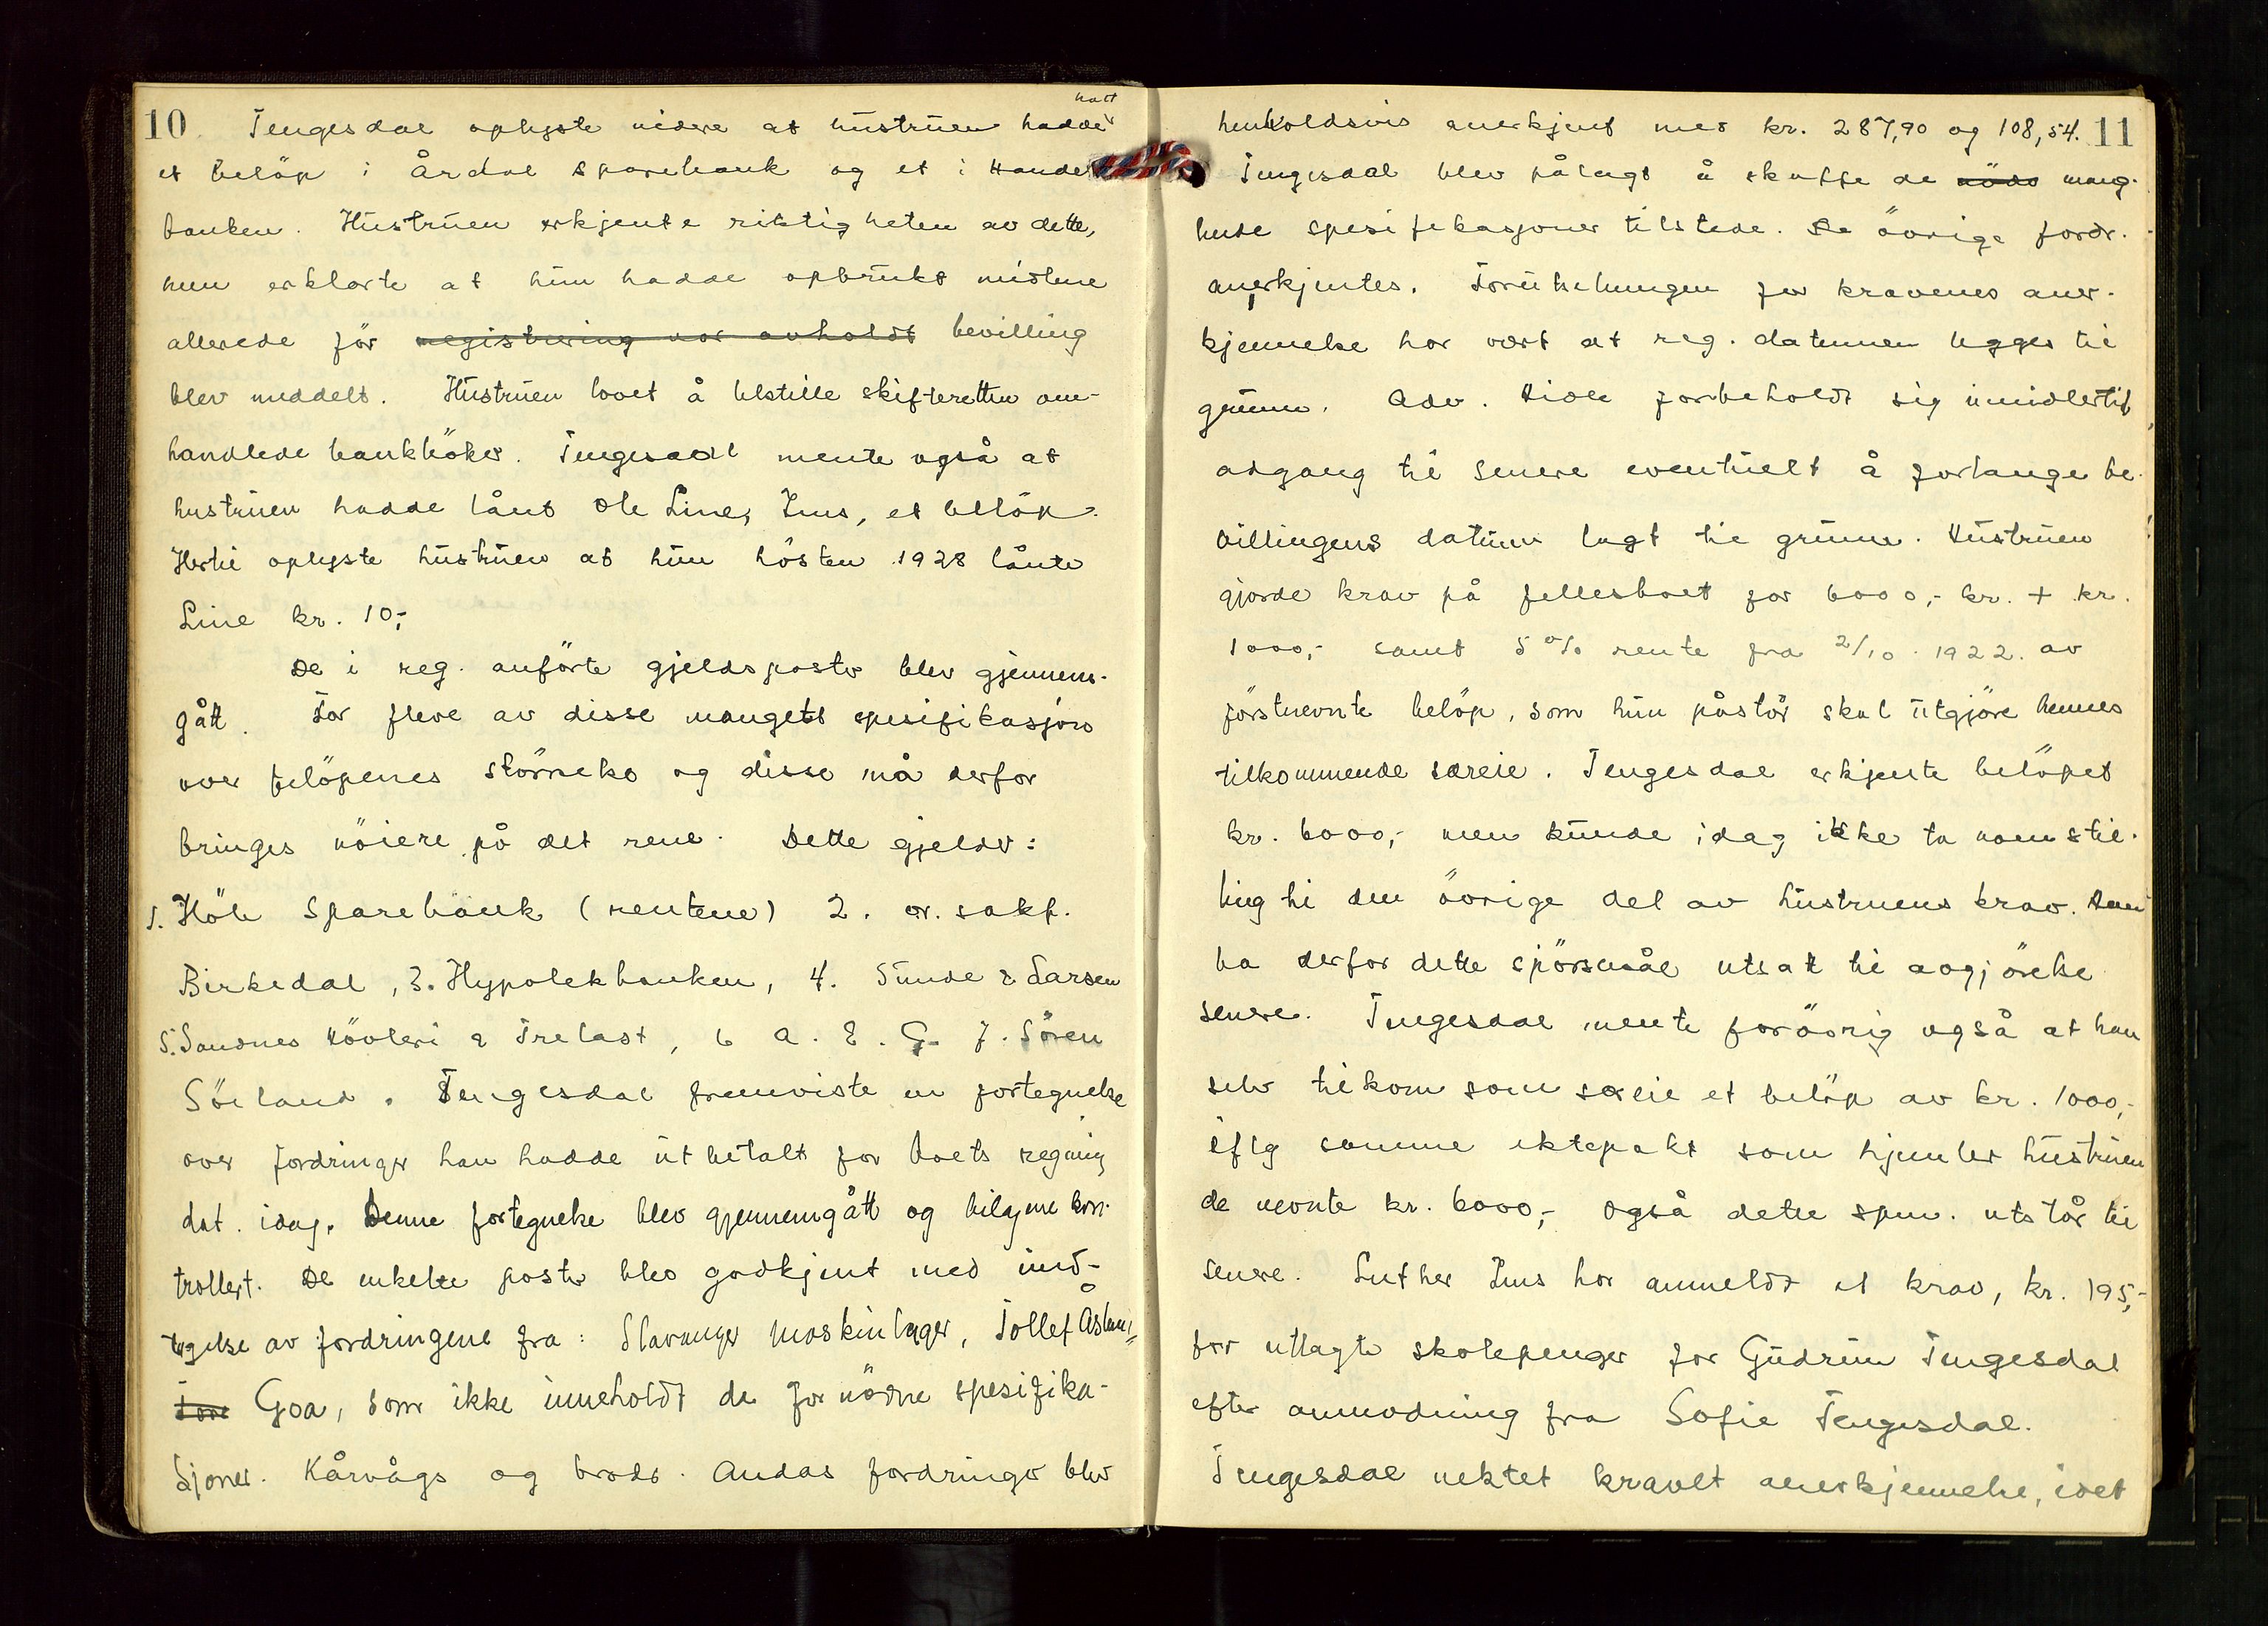 10 Tengesdal oplyste videre at hustruen hadde hatt
et beløp i Årdal sparebank og et i Handels
banken. Hustruen erkjente riktigheten av dette,
hun erklærte at hun hadde opbrukt midlene
allerede før registrering var avholdt bevilling
blev meddelt. Hustruen lovet å tilstille skifteretten om-
handlede bankbøker. Tengesdal mente også at
hustruen hadde lånt Ole Line, Ims, et beløp.
Hertil oplyste hustruen at hun høsten 1928 lånte
Line kr. 10,-
De i reg. anførte gjeldsposter blev gjennem-
gått. For flere av disse manglet spesifikasjon
over beløpenes størrelse og disse må derfor
bringes nøiere på det rene. Dette gjelder:
1. Høle Sparebank (rentene) 2. or. sakf.
Birkedal, 3. Hypotekbanken, 4. Sunde & Larsen
5. Sandnes Høvleri & Trelast, 6 A. E. G. 7. Søren
Sørland. Tengesdal fremviste en fortegnelse
over fordringer han hadde utbetalt for boets regning
dat. idag. Denne fortegnelse blev gjennemgått og bilagene kon-
trollert. De enkelte poster blev godkjent med und-
tagelse av fordringene fra: Stavanger Maskinlager, Tollef Åsland,
Tore Goa, som ikke inneholdt de fornødne spesifika-
sjoner. Kårvågs og brødr. Audas fordringer blev
henholdsvis anerkjent med kr. 287,90 og 108,54. 11
Tengesdal blev pålagt å skaffe de nødv mang-
lende spesifikasjoner tilstede. De øvrige fordr.
anerkjentes. Forutsetningen for kravenes aner-
kjennelse har vært at reg. datumen legges til
grunn. Adv. Hide forbeholdt sig imidlertid
adgang til senere eventuelt å forlange be-
villingens datum lagt til grunn. Hustruen
gjorde krav på fellesboet for 6000,- kr. + kr.
1000,- samt 5 % rente fra 2/10. 1922. av
førstnevnte beløp, som hun påstår skal utgjøre hennes
tilkommende særeie. Tengesdal erkjente beløpet
kr. 6000,- men kunde idag ikke ta noen stil-
ling til den øvrige del av hustruens krav. Den
ba derfor dette spørsmål utsatt til avgjørelse
senere. Tengesdal mente forøvrig også at han
selv tilkom som særeie et beløp av kr. 1000,-
iflg samme ektepakt som hjemler hustruen
de nevnte kr. 6000,- Også dette spm. utstår til
senere. Luther Ims har anmeldt et krav, kr. 195,-
for utlagte skolepenger for Gudrun Tengesdal
efter anmodning fra Sofie Tengesdal.
Tengesdal nektet kravet anerkjennelse, idet